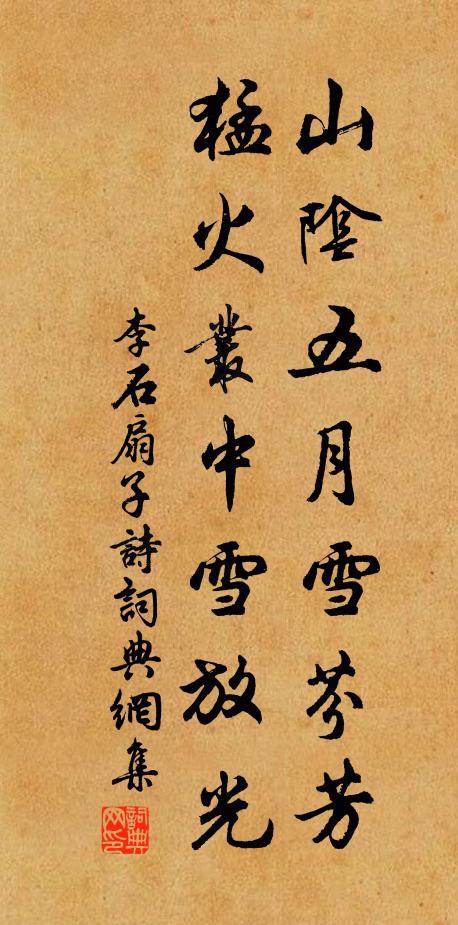 山陰五月雪芬芳
猛火叢中雪放光
李石扇子詩詞典網集
詞典網印